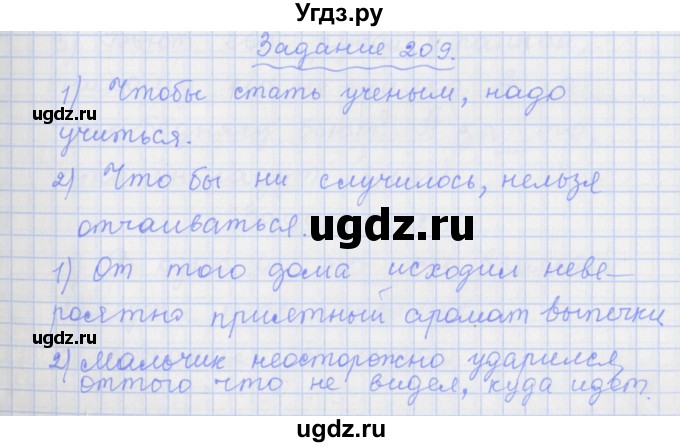 Угдз.ру
Задание 209.
1) Чтобы стать ученым, надо
ugdz.ru
учиться.
2) Что бы ни случилось, нельзя
отчаиваться.
ugdz.ru
1) От того дома исходил неве-
роятно приятный аромат выпечки
2) Мальчик неосторожно ударился,
оттого что не видел, куда идет.
ugdz.ru